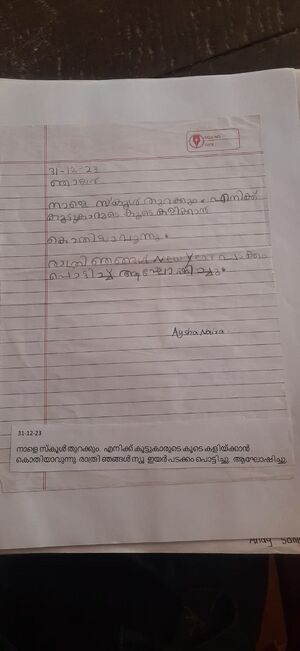 31-12-23
ഞായർ
നാളെ സ്കൂൾ തുറക്കും. എനിക്ക്
കൂട്ടുകാരുടെ കൂടെ കളിക്കാൻ
കൊതിയാവുന്നു.
രാത്രി ഞങ്ങൾ New Year പടക്കം
പൊട്ടിച്ച് ആഘോഷിച്ചു.
Aysha Naira
31-12-23
നാളെ സ്കൂൾ തുറക്കും. എനിക്ക് കൂട്ടുകാരുടെ കൂടെ കളിയ്ക്കാൻ
കൊതിയാവുന്നു. രാത്രി ഞങ്ങൾ ന്യൂ ഇയർ പടക്കം പൊട്ടിച്ചു. ആഘോഷിച്ചു.